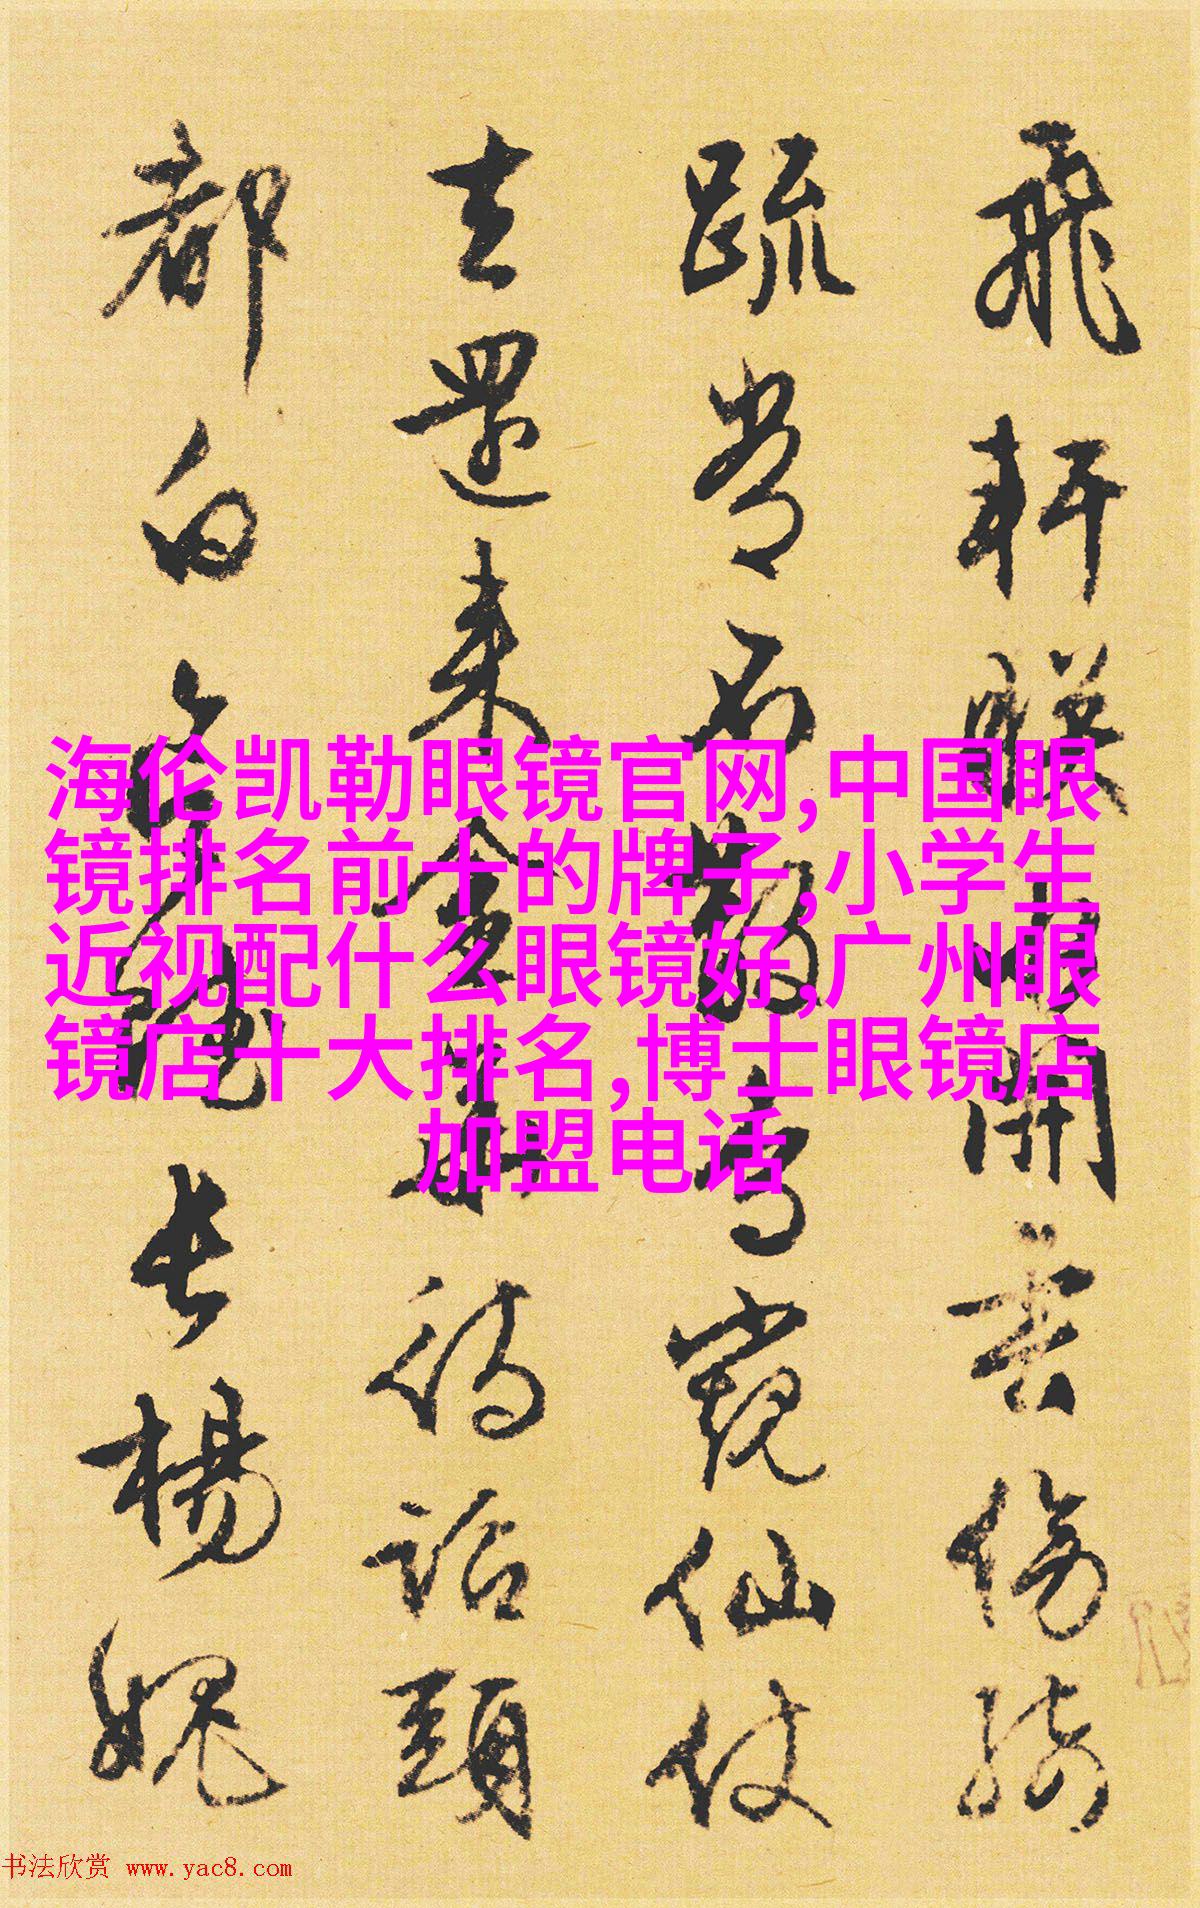 飛軒暎水開雲傍綺
疏常不散鳥窺仙仗
去還来金華待詔頭
都白欲賦長楊愧
海伦凯勒眼镜官网,中国眼
镜排名前十的牌子,小学生
近视配什么眼镜好,广州眼
镜店十大排名,博士眼镜店
加盟电话
书法欣赏 www.yac8.com